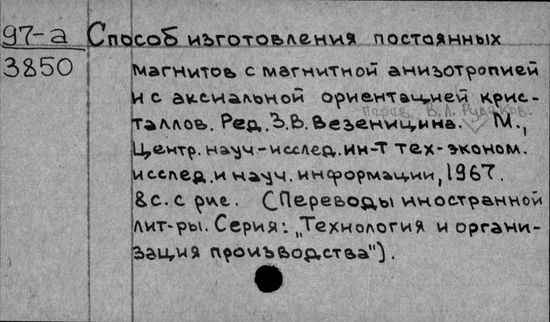 97-а Способ изготовления постоянных
3850 магнитов с магнитной анизотропией
и с аксиальной ориентацией крис-
Перев. В.Л. Рудаков.
таллов. Ред. З.В. Везеницина. М.,
Центр. науч-исслед. ин-т тех-эконом.
исслед. и науч. информации, 1967.
8с. с рис. (Переводы иностранной
лит-ры. Серия: „Технология и органи-
зация производства").